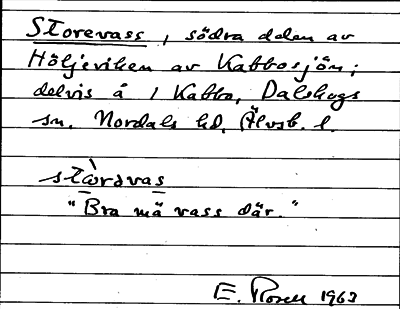 Storevass, södra delen av
Höljeviken av Kabbosjön;
delvis å 1 Kabbo, Dalskogs
sn. Nordals hd. Älvsb. l.
stòrəvas
"Bra mä vass där."
E. Rosell 1963